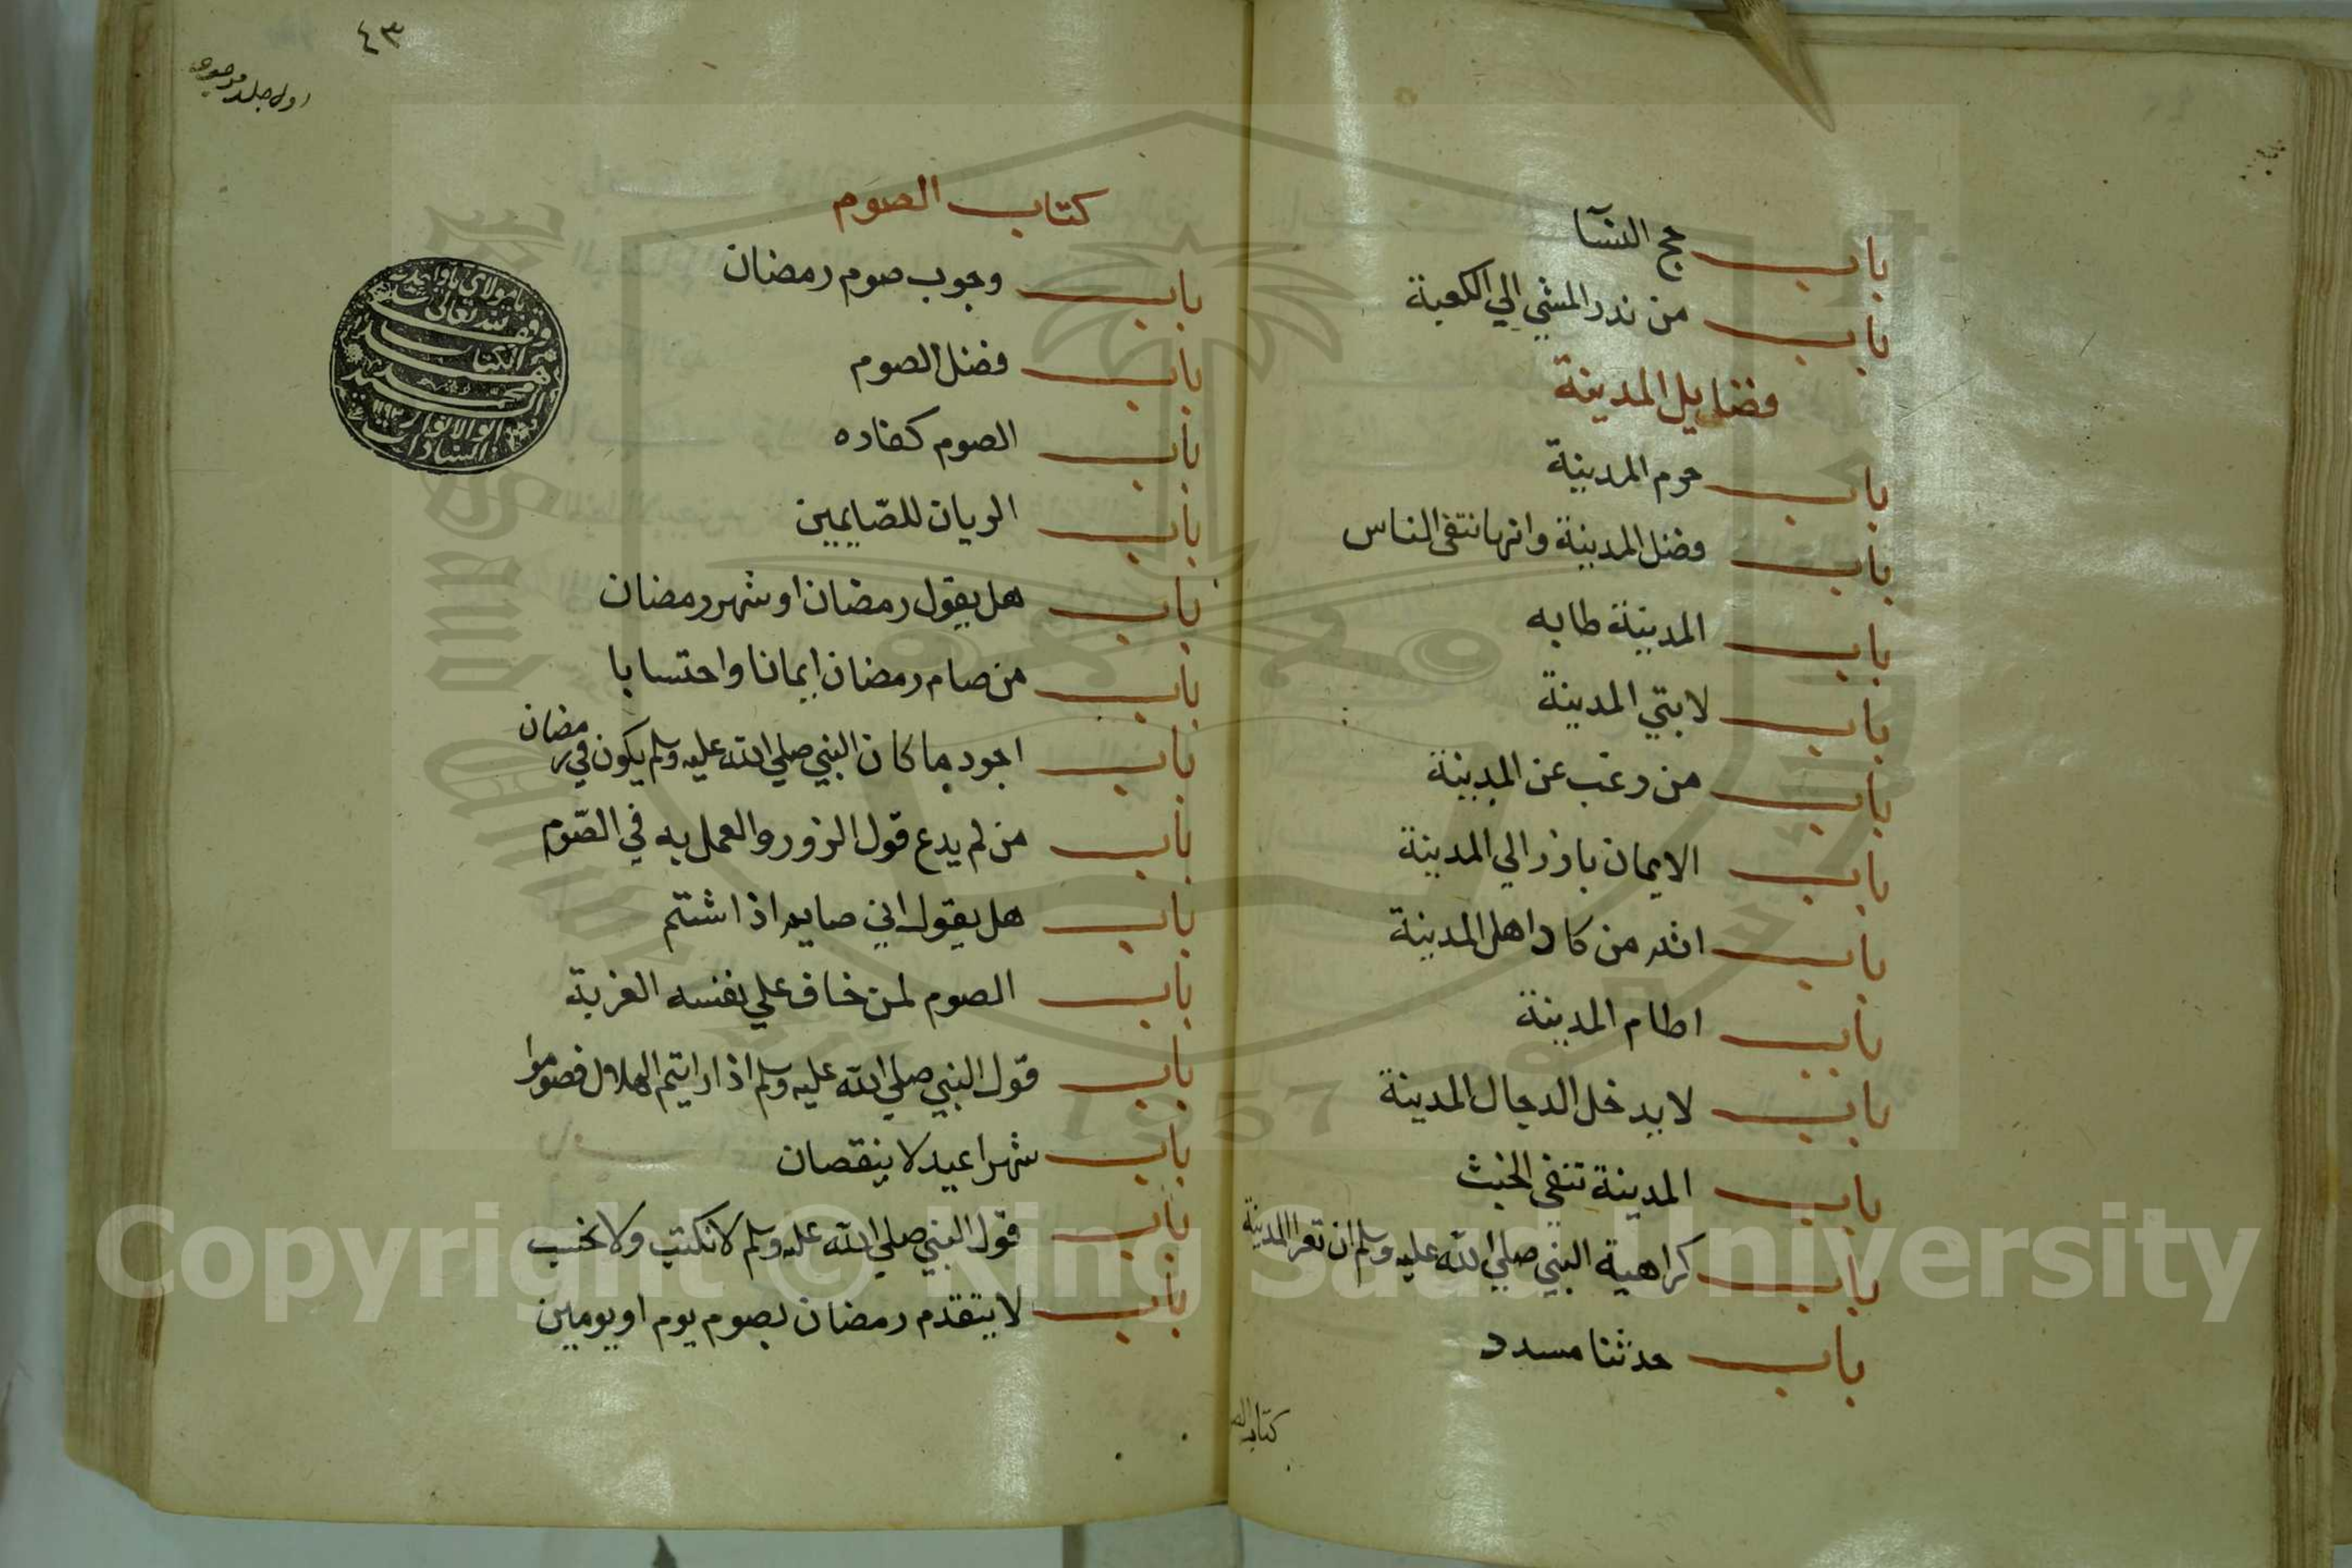 باب حج النسآ
باب من نذر المشي الي الكعبة
فضايل المدينة
باب حرم المدينة
باب فضل المدينة وانها تنفي الناس
باب المدينة طابه
باب لابتي المدينة
باب من رغب عن المدينة
باب الايمان يارز الي المدينة
باب اثم من كاد اهل المدينة
باب اطام المدينة
باب لا يدخل الدجال المدينة
باب المدينة تنفي الخبث
باب كراهية النبي صلي الله عليه وسلم ان تعرا المدينة
باب حدثنا مسدد
كتاب الصو
٤٣
كتاب الصوم
باب وجوب صوم رمضان
باب فضل الصوم
باب الصوم كفاره
باب الريان للصّايمين
باب هل يقول رمضان او شهر رمضان
باب من صام رمضان ايمانا واحتسابا
باب اجود ما كان النبي صلي الله عليه وسلم يكون في رمضان
باب من لم يدع قول الزور والعمل به في الصّوم
باب هل يقول اني صايم اذا شتم
باب الصوم لمن خاف علي نفسه العزبة
باب قول النبي صلي الله عليه وسلم اذا رايتم الهلال فصوموا
باب شهرا عيد لا ينقصان
باب قول النبي صلي الله عليه وسلم لا نكتب ولا نحسب
باب لا يتقدم رمضان بصوم يوم او يومين
Copyright © King Saud University
1957